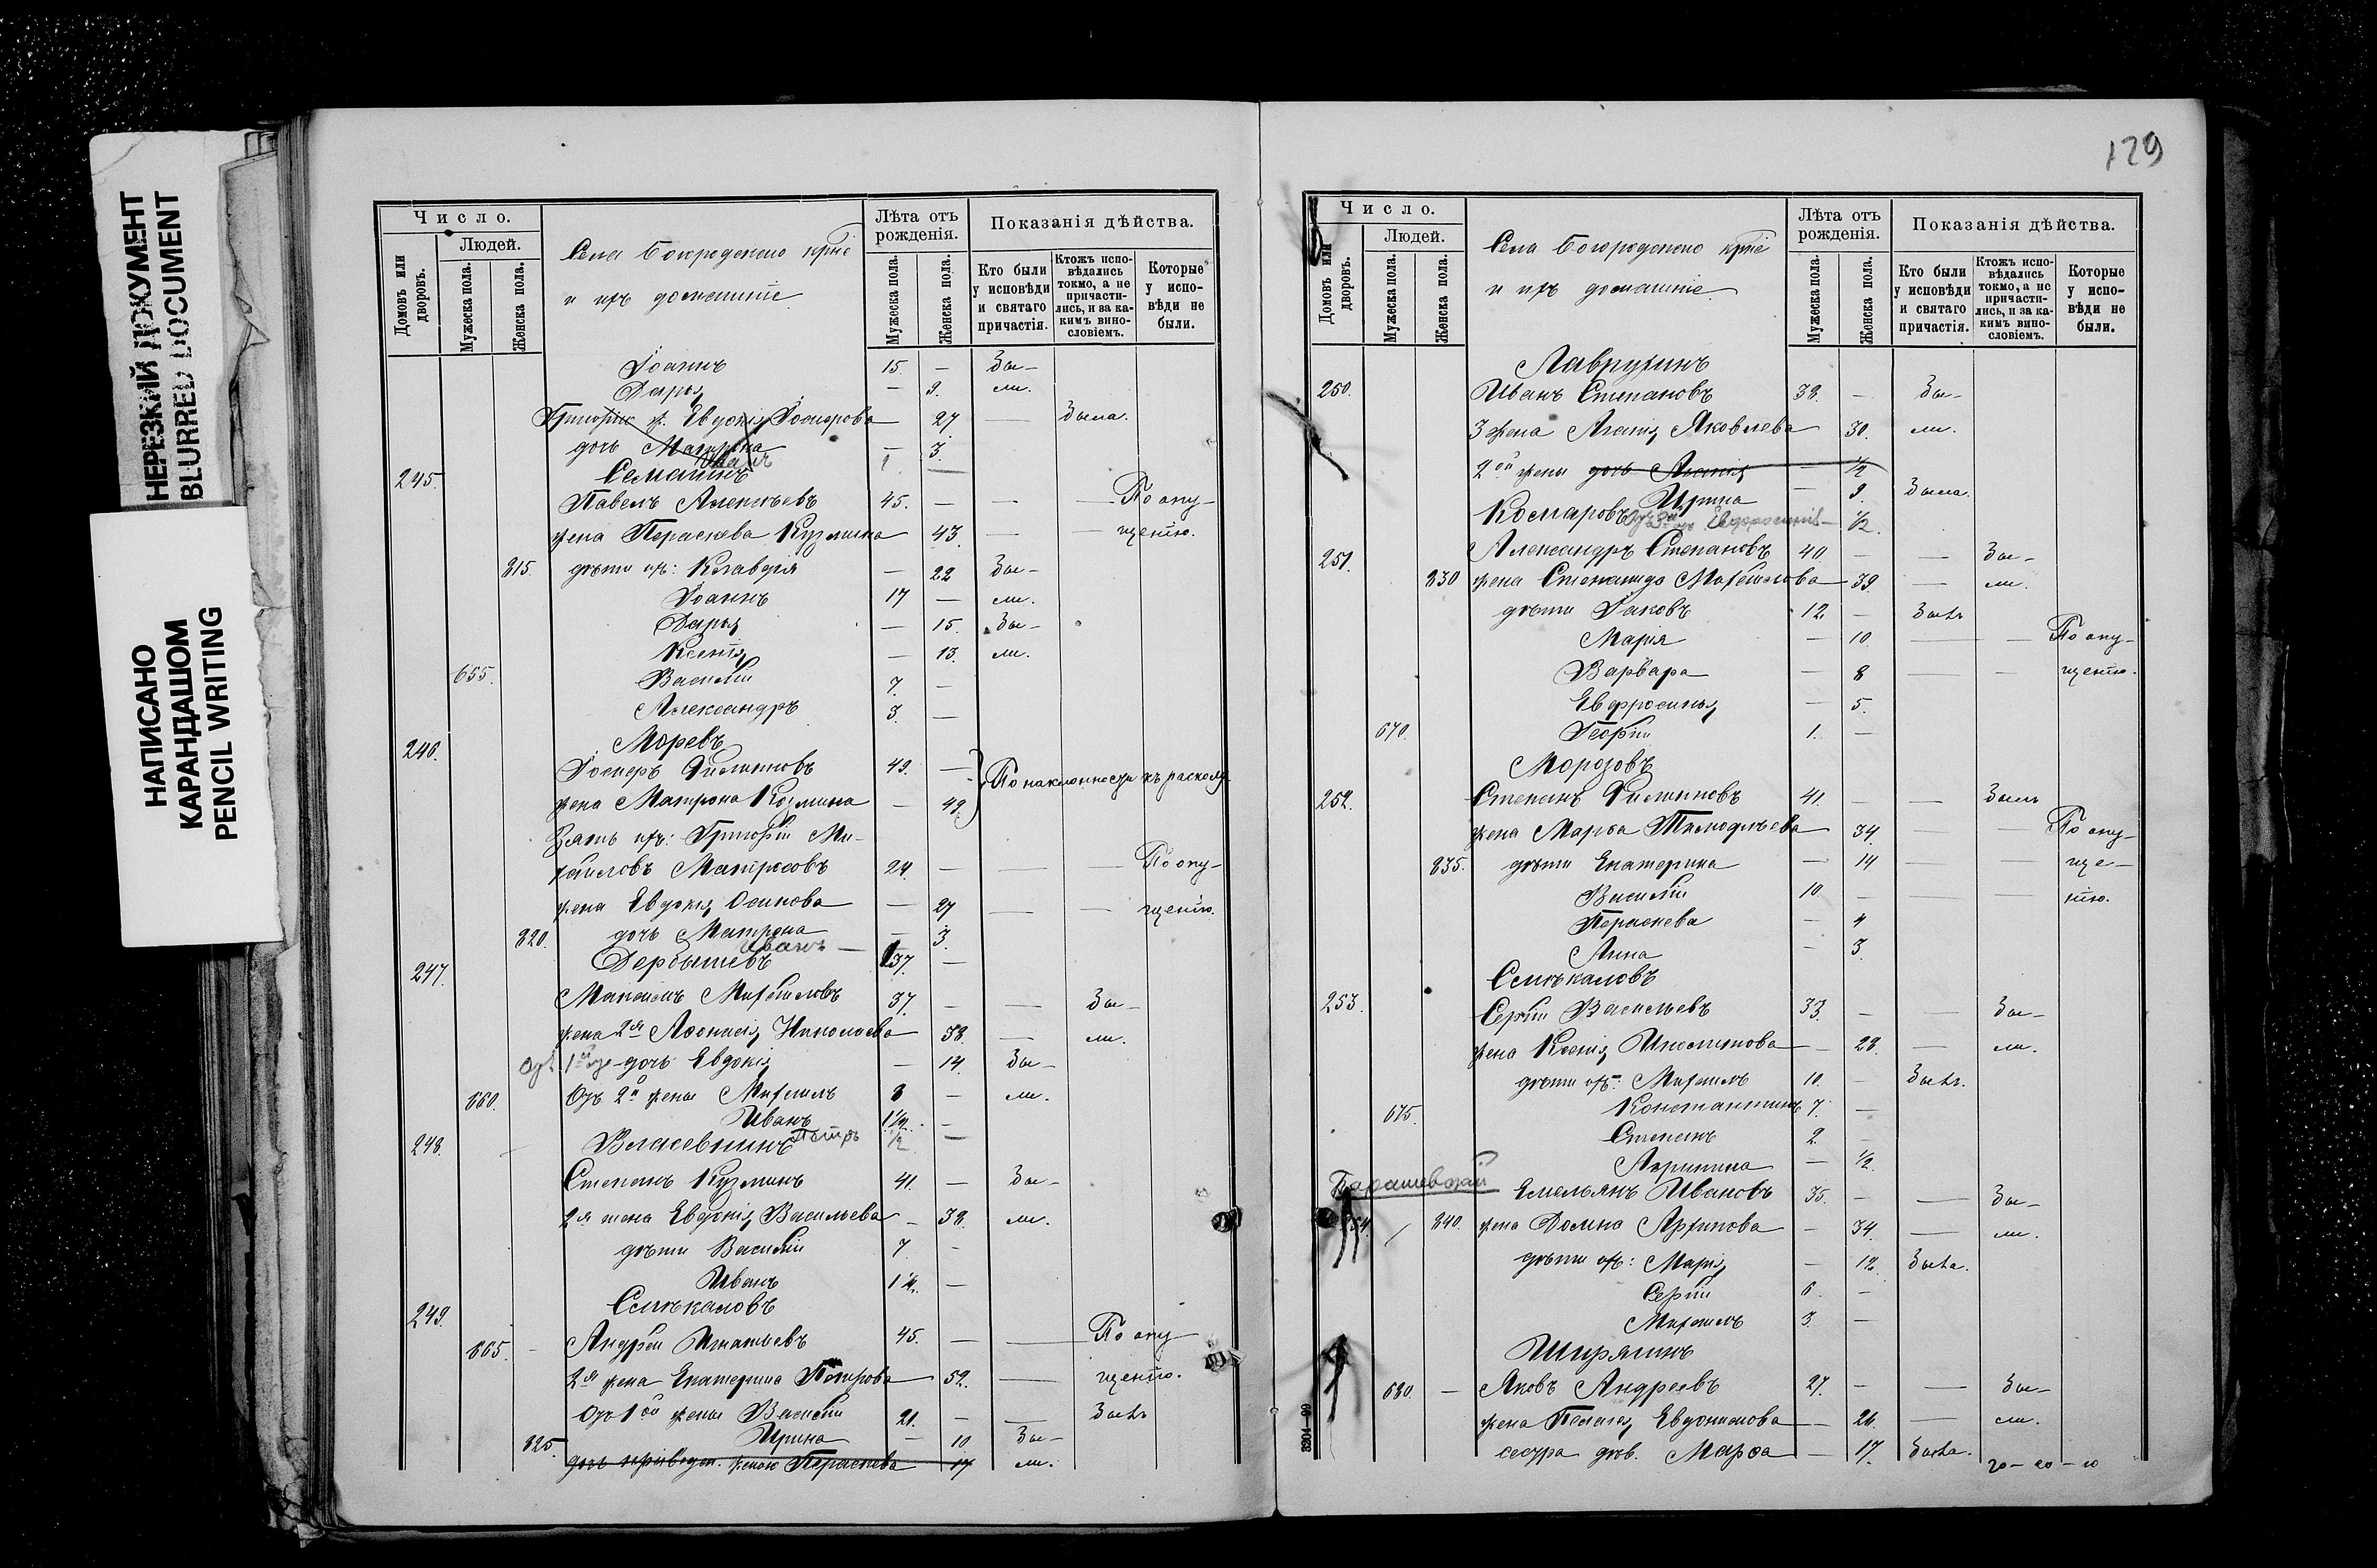 НЕРЕЗКИЙ ДОКУМЕНТ
BLURRED DOCUMENT
НАПИСАНО
КАРАНДАШОМ
PENCIL WRITING
Число.
Людей.
Домовъ или дворовъ.
Мужеска пола.
Женска пола.
Села Богородскаго крте
и ихъ домашніе
Лѣта отъ рожденія.
Мужеска пола.
Женска пола.
Показанія дѣйства.
Кто были у исповѣди и святаго причастія.
Ктожъ исповѣдались токмо, а не причастились, и за какимъ винословіемъ.
Которые у исповѣди не были.
Іоаннъ 15. — Бы-
Дарья — 9. ли.
Григорію ж. Евдокія Іосифова 27 — Была.
дочь Матрона — 3.
Иванъ 1 —
245. Семагинъ
Павелъ Алексѣевъ 45. — — — По опу-
жена Параскева Кузмина 43. — — щенію.
815. дѣти ихъ: Клавдія — 22 Бы-
Іоаннъ 17 — ли.
Дарья — 15. Бы-
Ксенія — 13. ли.
655. Василій 7. —
Александръ 3. —
246. Моревъ
Іосифъ Филиповъ 49. — По наклонности къ расколу
жена Матрона Козмина — 49.
Зять ихъ: Григорій Ми-
хаиловъ Матросовъ 24. — — — По опу-
жена Евдокія Осипова — 27 — — щенію.
820. дочь Матрона — 3.
Иванъ —
247. Дербышевъ 37. —
Максимъ Михаиловъ 37. — — Бы-
жена 2я Афонасія Николаева 38. — ли.
Отъ 1ой же дочь Евдокія — 14. Бы-
660. Отъ 2й жены Михаилъ 8 — ли.
Иванъ 1½. -
Петръ ½ —
248. Власевнинъ
Степанъ Кузминъ 41. — Бы-
2я жена Евдокія Васильева - 38. ли.
дѣти Василій 7. -
Иванъ 1½. —
249. Сенькаловъ
665. - Андрей Игнатьевъ 45. — — По опу-
2я жена Екатерина Петрова 52. — щенію.
Отъ 1ой жены Василій 21. — — Былъ
825. Ирина — 10 Бы-
дочь приведен. женою Параскева 17 ли.
129
Число.
Людей.
Домовъ или дворовъ.
Мужеска пола.
Женска пола.
Села Богородскаго крте
и ихъ домашніе.
Лѣта отъ рожденія.
Мужеска пола.
Женска пола.
Показанія дѣйства.
Кто были у исповѣди и святаго причастія.
Ктожъ исповѣдались токмо, а не причастились, и за какимъ винословіемъ.
Которые у исповѣди не были.
Лаврухинъ
250. Иванъ Степановъ 38. — Бы-
3 жена Агапія Яковлева 30. ли.
2ой жены дочь — ½
Ирина — 9. Была.
Евфросинія — ½.
Комаровъ
251. Александръ Степановъ 40 — — Бы-
830 жена Степанида Михаилова 39. — ли.
дѣти Іаковъ 12. — Былъ
Марія — 10. — — По опу-
Варвара — 8 — — щенію.
Евфросинья — 5.
670. Георгій 1. —
Морозовъ
252. Степанъ Филиповъ 41. — — Былъ
жена Марѳа Тимофѣева 34. — По опу-
835. дѣти Екатерина — 14 — — ще-
Василій 10 — — — нію.
Параскева — 4
Анна — 3.
Сенькаловъ
253. Сергій Васильевъ 33. — — Бы-
жена Ксенія Ипполитова — 28. — ли.
дѣти ихъ: Михаилъ 10. — Былъ.
675. Константинъ 7. —
Степанъ 2. —
Акулина — ½.
Барашевскій
Емельянъ Ивановъ 35. — — Бы-
254. 840. жена Домна Архипова — 34. — ли.
дѣти ихъ: Марія — 12. Была.
Сергій 6. —
Михаилъ 3. —
Ширягинъ
680. — Яковъ Андреевъ 27. — — Бы-
жена Пелагея Евдокимова — 26. — ли.
сестра дѣв. Марѳа — 17. Была.
20 — 20 — 10
3204—90